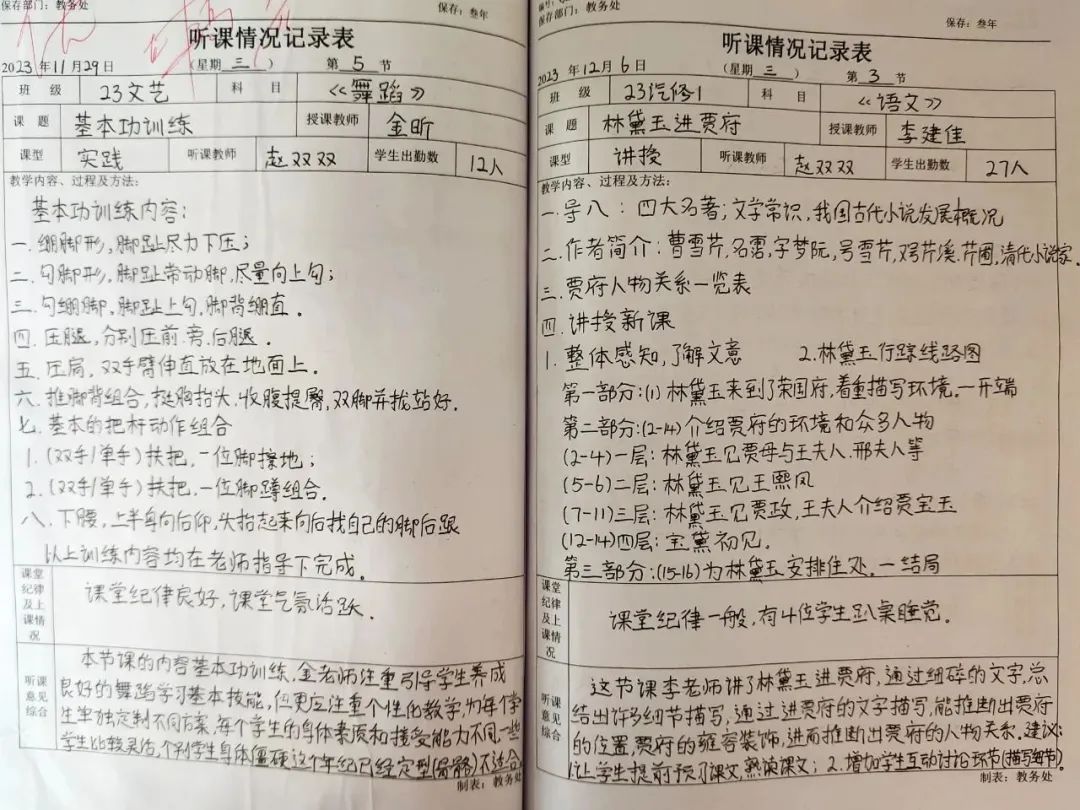 保存部门：教务处
保存：叁年
听课情况记录表
2023年11月29日 （星期 三 ） 第 5 节
班 级 23文艺 科 目 《舞蹈》
课 题 基本功训练 授课教师 金昕
课型 实践 听课教师 赵双双 学生出勤数 12人
教学内容、过程及方法：
基本功训练内容：
一.绷脚形,脚趾尽力下压；
二.勾脚形,脚趾带动脚,尽量向上勾；
三.勾绷脚,脚趾上勾.脚背绷直.
四.压腿,分别压前.旁.后腿.
五.压肩,双手臂伸直放在地面上.
六.推脚背组合,挺胸抬头.收腹提臀,双脚并拢站好.
七.基本的把杆动作组合
1.(双手/单手)扶把,一位脚擦地；
2.(双手/单手)扶把.一位脚蹲组合.
八.下腰,上半身向后仰,头抬起来向后找自己的脚后跟
以上训练内容均在老师指导下完成.
课堂纪律及上课情况 课堂纪律良好,课堂气氛活跃.
听课意见综合
本节课的内容基本功训练,金老师注重引导学生养成
良好的舞蹈学习基本技能,但更应注重个性化教学,为每个学
生单独定制不同方案,每个学生的身体素质和接受能力不同一些
学生比较灵活,个别学生身体僵硬这个年纪已经定型(骨骼)不适合
制表：教务处
保存部门：教务处
保存：叁年
听课情况记录表
2023 年 12月 6 日 （星期 三 ） 第 3 节
班 级 23汽修1 科 目 《语文》
课 题 林黛玉进贾府 授课教师 李建佳
课型 讲授 听课教师 赵双双 学生出勤数 27人
教学内容、过程及方法：
一.导入：四大名著；文学常识,我国古代小说发展概况
二.作者简介：曹雪芹,名霑,字梦阮,号雪芹,又号芹溪.芹圃,清代小说家.
三.贾府人物关系一览表
四.讲授新课
1.整体感知,了解文意 2.林黛玉行踪线路图
第一部分:(1)林黛玉来到了荣国府,着重描写环境.一开端
第二部分:(2-14)介绍贾府的环境和众多人物
(2-4)一层:林黛玉见贾母与王夫人.邢夫人等
(5-6)二层:林黛玉见王熙凤
(7-11)三层:林黛玉见贾政,王夫人介绍贾宝玉
(12-14)四层:宝黛初见.
第三部分:(15-16)为林黛玉安排住处.一结局
课堂纪律及上课情况 课堂纪律一般,有4位学生趴桌睡觉.
听课意见综合
这节课李老师讲了林黛玉进贾府,通过细碎的文字,总
结出许多细节描写,通过进贾府的文字描写,能推断出贾府
的位置,贾府的雍容装饰,进而推断出贾府的人物关系.建议:
1.让学生提前预习课文,熟读课文；2.增加学生互动讨论环节(描写细节).
制表：教务处